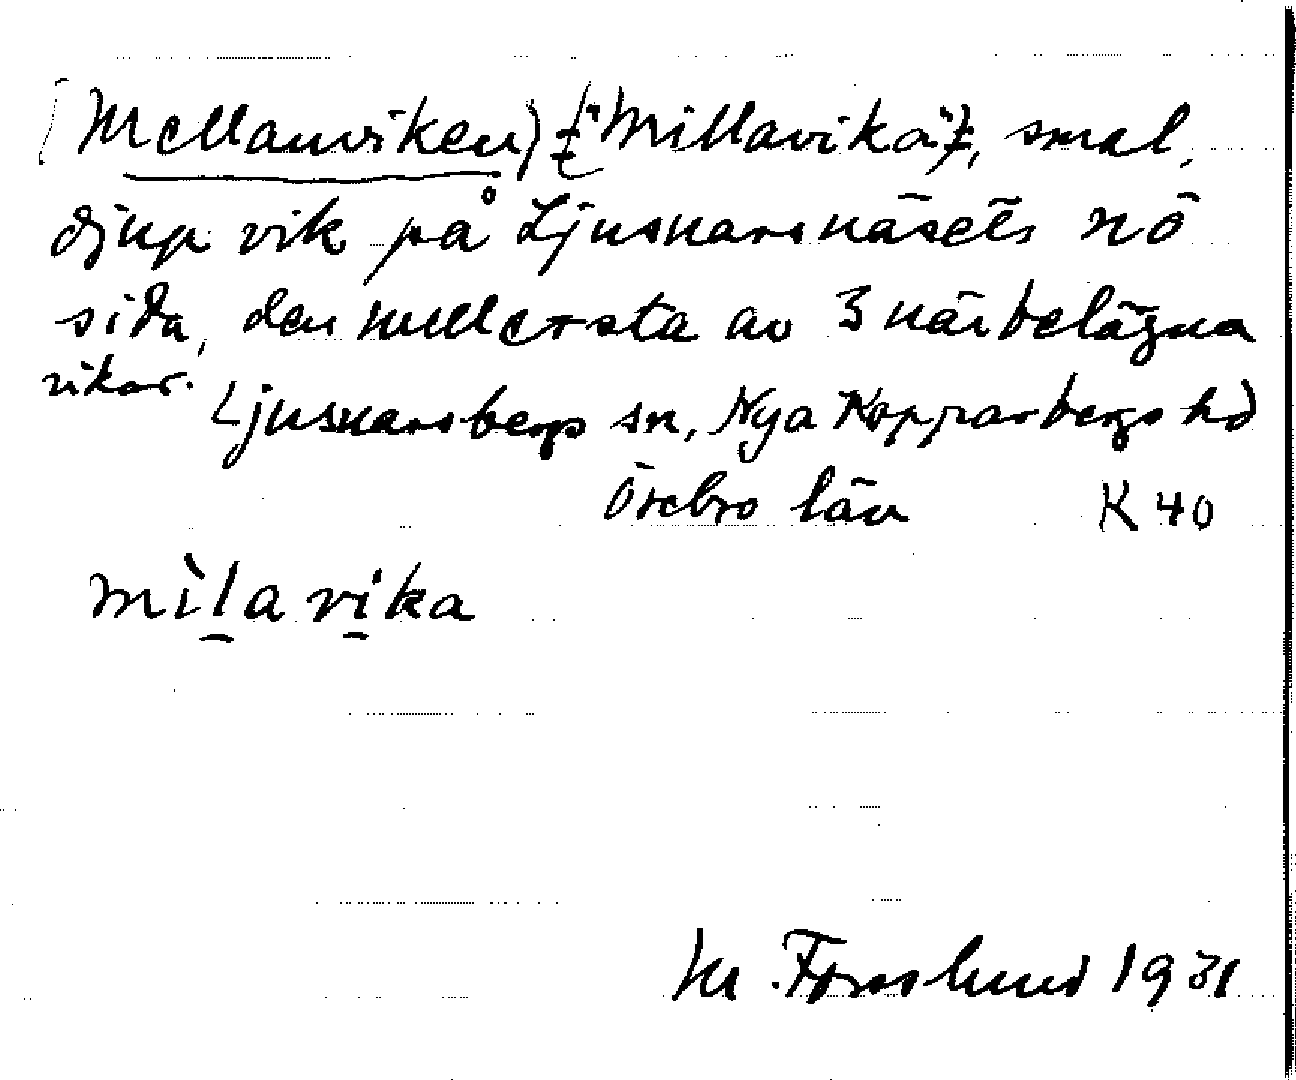 (Mellanviken) ("Millavika"), smal,
djup vik på Ljusnarsnäsets nö
sida, den mellersta av 3 närbelägna
vikar.
Ljusnarsbergs sn, Nya Kopparbergs hd
Örebro län K 40
mìlavika
M. Forslund 1931